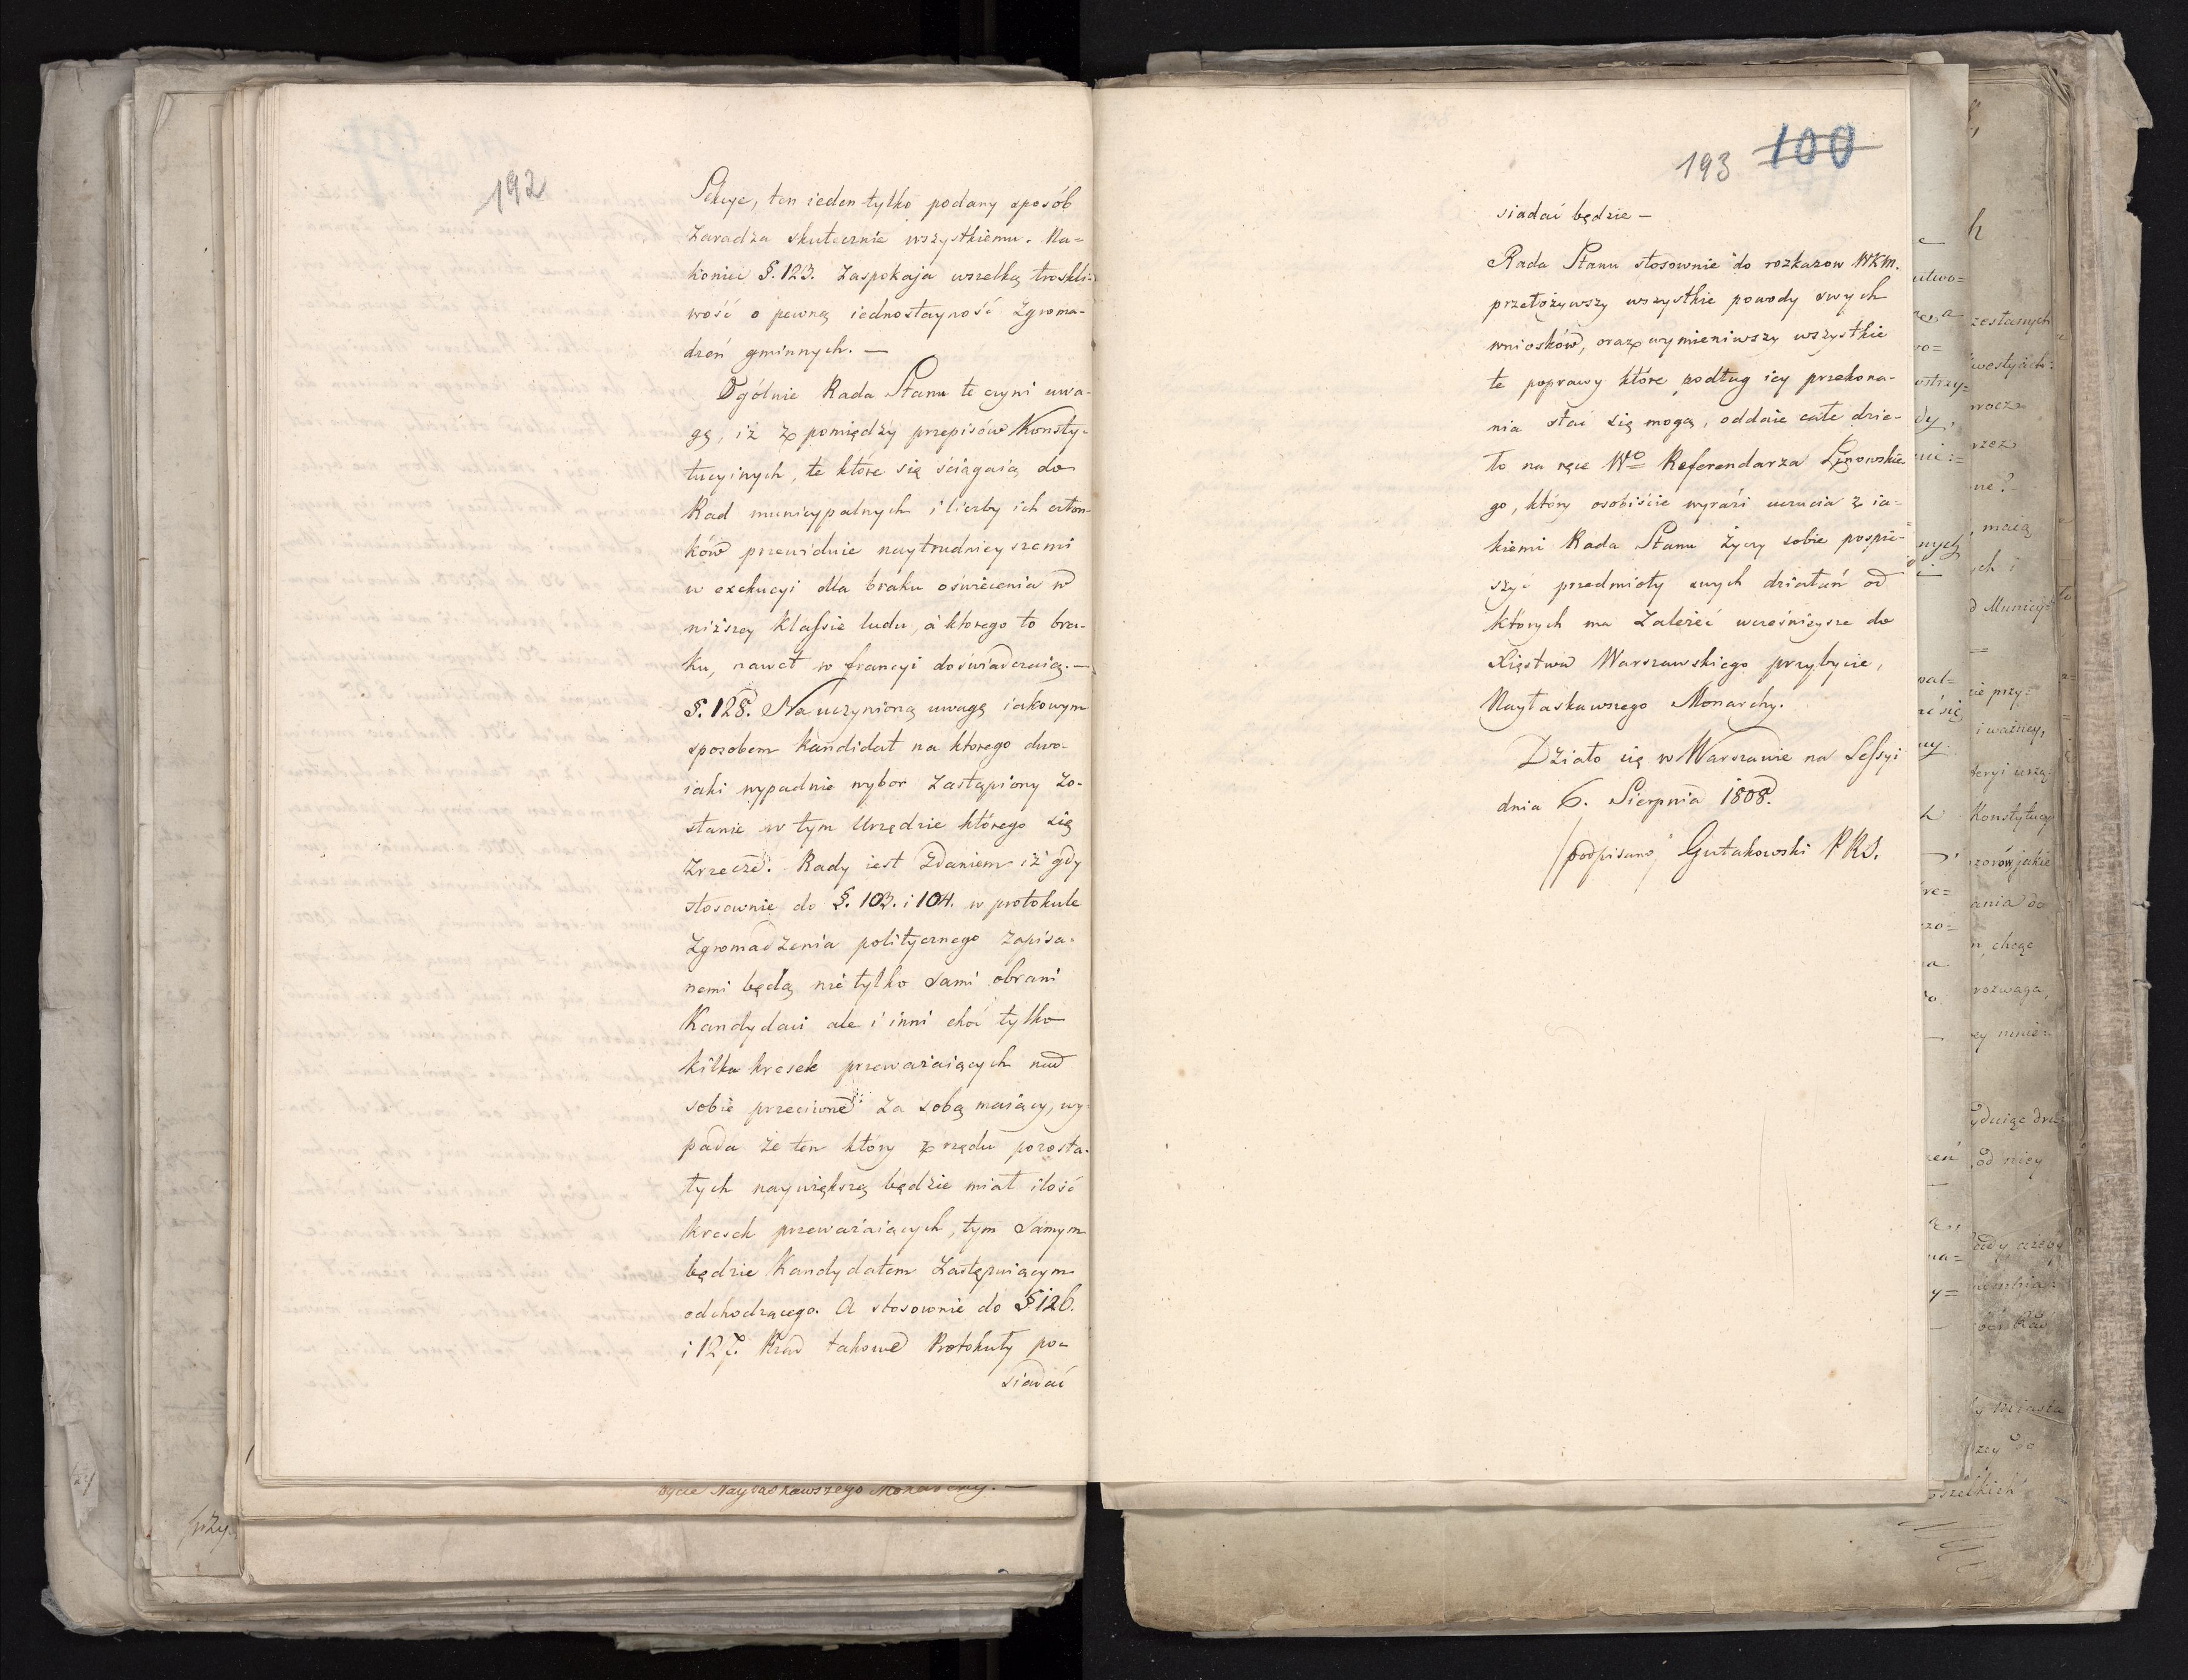 192
Sekcye, ten ieden tylko podany sposób
zaradza skutecznie wszystkiemu. Na=
koniec §. 123. zaspokaja wszelką troskli=
wość o pewną iednostayność Zgroma-
dzeń gminnych. —
Ogólnie Rada Stanu te czyni uwa-
gę, iż z pomiędzy przepisów Konsty-
tucyinych, te które się ściągaią do
Rad municypalnych i liczby ich człon-
ków przewiduie naytrudnieyszemi
w exekucyi dla braku oświecenia w
niższey klassie ludu, a ktorego to bra-
ku, nawet w francyi doświadczaią. —
§. 128. Na uczynioną uwagę iakowym
sposobem kandidat na ktorego dwo-
iaki wypadnie wybor zastąpiony zo-
stanie w tym Urzędzie którego się
zrzecze. Rady iest zdaniem iż gdy
stosownie do §. 103. i 104. w protokule
Zgromadzenia politycznego zapisa-
nemi będą nie tylko sami obrani
Kandydaci ale i inni choć tylko
kilka kresek przeważaiących nad
sobie przeciwne za sobą maiący, wy-
pada że ten który z rzędu pozosta-
łych naywiększą będzie miał ilość
kresek przeważaiących, tym samym
będzie Kandydatem zastępuiącym
odchodzącego. A stosownie do § 126.
i 127. Rząd takowe Protokuły po-
siadać
193 100
siadać będzie —
Rada Stanu stosownie do rozkazow WKM.
przełożywszy wszystkie powody swych
wniosków, oraz wymieniwszy wszystkie
te poprawy które podług iey przekona-
nia stać się mogą, oddaie całe dzie-
ło na ręce Wo Referendarza Linowskie
go, który osobiście wyrazi uczucia z ia-
kiemi Rada Stanu życzy sobie pospie-
szyć przedmioty swych działań od
których ma zależeć wcześnieysze do
Xięstwa Warszawskiego przybycie,
Nayłaskawszego Monarchy.
Działo się w Warszawie na Sessyi
dnia 6. Sierpnia 1808.
/podpisano/ Gutakowski PRS.
Nayłaskawszego Monarchy. —